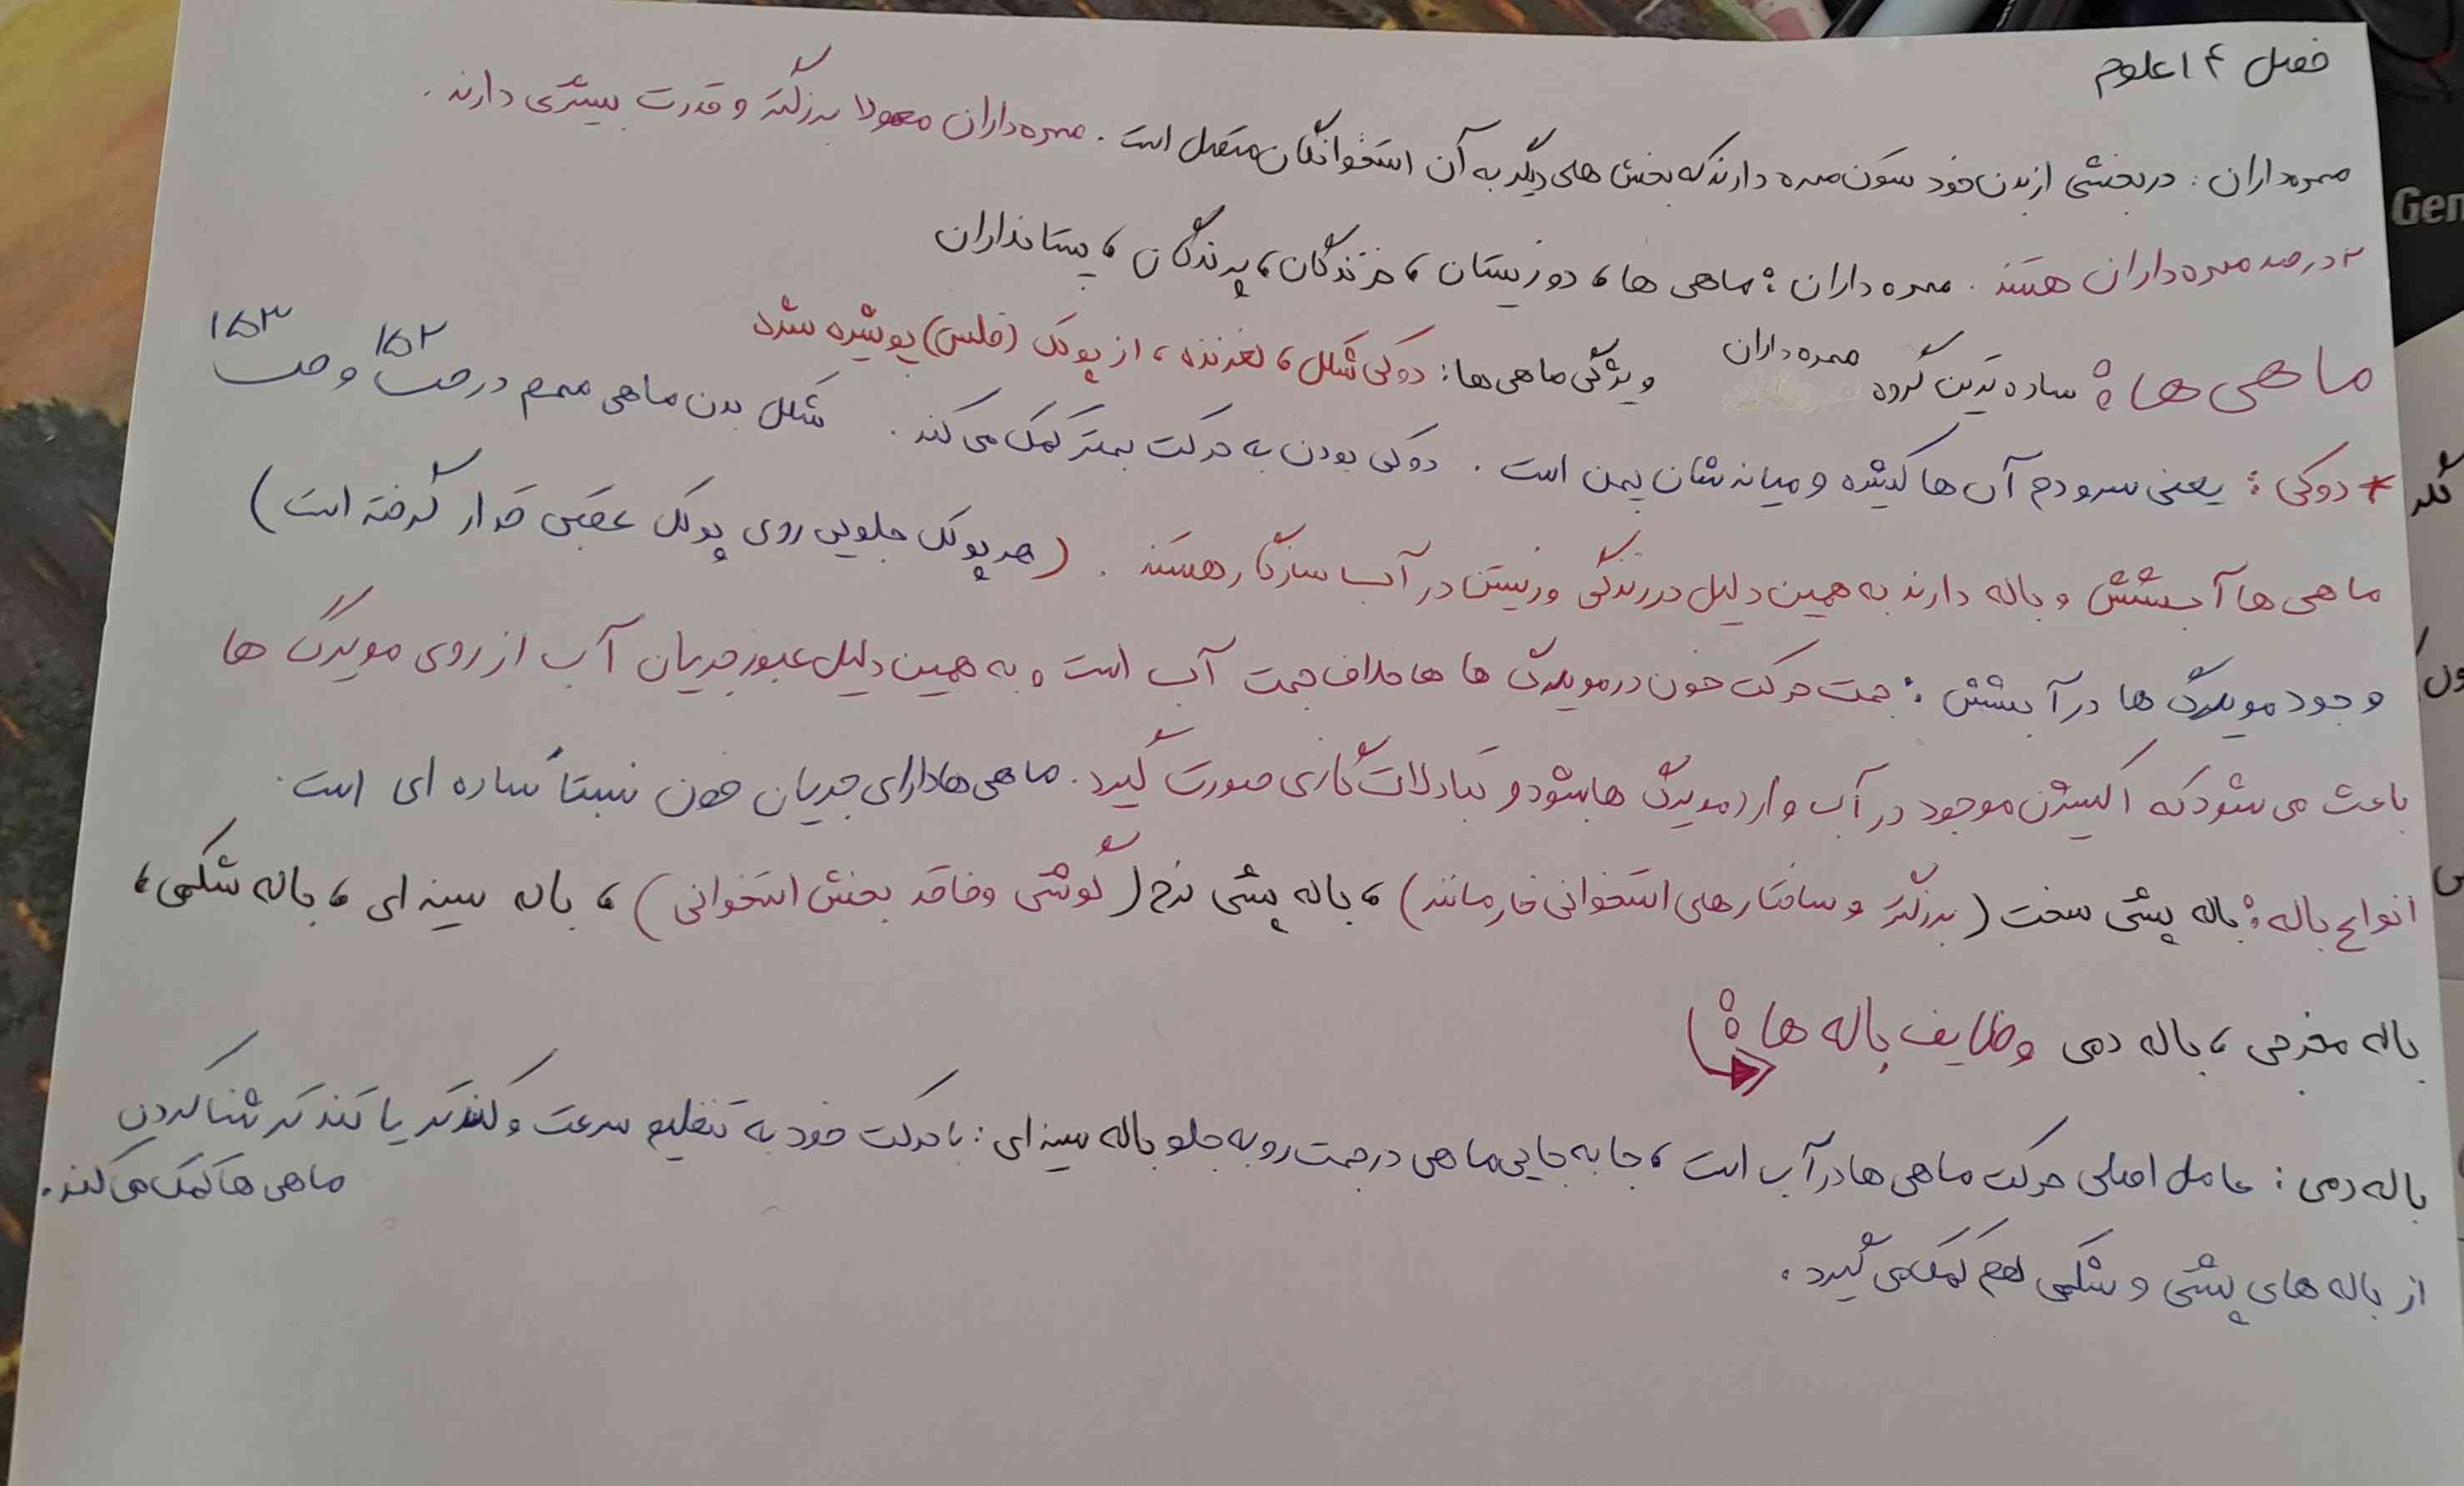 فصل ۱۴ علوم
مهره‌داران : در بخشی از بدن خود ستون مهره دارند که بخش های دیگر به آن استخوانگان متصل است . مهره‌داران معمولا بزرگتر و قدرت بیشتری دارند .
۲ درصد مهره‌داران هستند . مهره داران : ماهی ها ، دوزیستان ، خزندگان ، پرندگان ، پستانداران
ماهی ها : ساده ترین گروه مهره‌داران ویژگی ماهی ها : دوکی شکل ، لغزنده ، از پولک (فلس) پوشیده شده
* دوکی : یعنی سر و دم آن ها کشیده و میانه شان پهن است . دوکی بودن به حرکت بهتر کمک می کند . شکل بدن ماهی مهم در ص ۱۵۲ و ص ۱۵۳
ماهی ها آبشش و باله دارند به همین دلیل در زندگی و زیستن در آب سازگار هستند . (هر پولک جلویی روی پولک عقبی قرار گرفته است)
وجود مویرگ ها در آبشش : جهت حرکت خون در مویرگ ها ها خلاف جهت آب است و به همین دلیل عبور جریان آب از روی مویرگ ها
باعث می شود که اکسیژن موجود در آب وارد مویرگ ها بشود و تبادلات گازی صورت گیرد . ماهی ها دارای جریان خون نسبتاً ساده ای است .
انواع باله : باله پشتی سخت (بزرگتر و ساختارهای استخوانی خار مانند) ، باله پشتی نرم (گوشتی و فاقد بخش استخوانی) ، باله سینه ای ، باله شکمی ،
باله مخرجی ، باله دمی وظایف باله ها :
باله دمی : عامل اصلی حرکت ماهی ها در آب است ، جا به جایی ماهی در جهت رو به جلو باله سینه ای : با حرکت خود به تنظیم سرعت و کندتر یا تندتر شنا کردن
ماهی ها کمک می کند .
از باله های پشتی و شکمی هم کمک می گیرد .
Gen